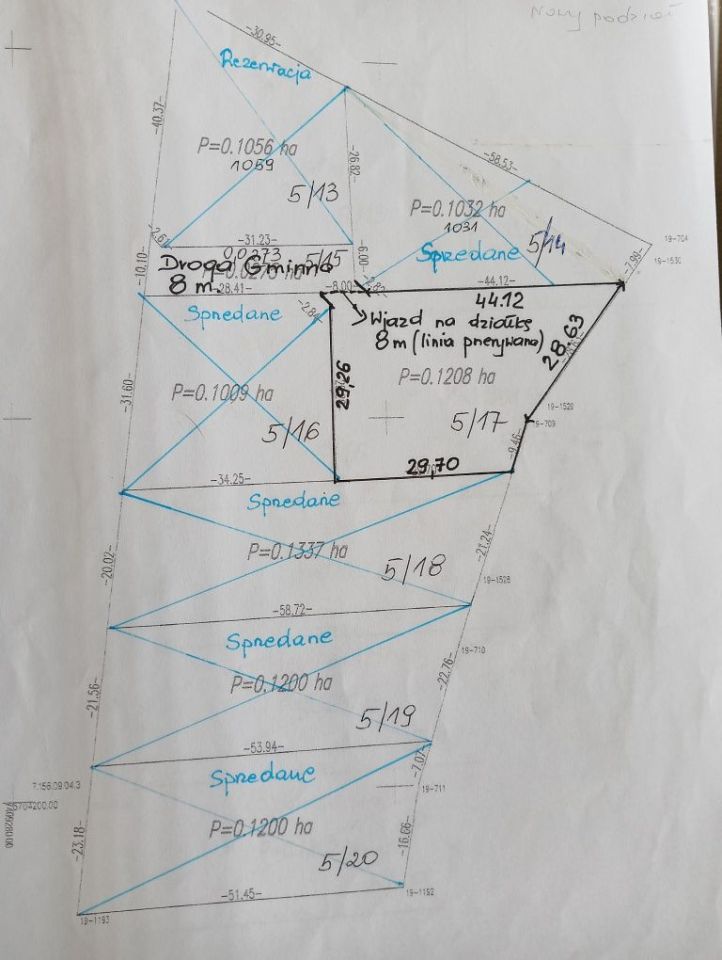 Nowy podział
-30.95-
Rezerwacja
-40.37-
P=0.1056 ha
1059
-26.82-
-58.53-
5/13
P=0.1032 ha
1031
5/14
Sprzedane
19-704
19-1530
-7.99-
2.61
-31.23-
0,0273
5/15
-6.00-
Droga Gminna
8 m.
-10.10-
-28.41-
-8.00-
-2.82-
-44.12-
44.12
Sprzedane
-2.84-
Wjazd na działkę
8m (linia przerywana)
28,63
-31.60-
P=0.1009 ha
29,26
P=0.1208 ha
5/16
5/17
19-1529
19-709
-9.46-
-34.25-
29,70
Sprzedane
P=0.1337 ha
5/18
-20.02-
-21.24-
19-1528
-58.72-
Sprzedane
19-710
P=0.1200 ha
5/19
-21.56-
-22.76-
-53.94-
Sprzedane
-7.07-
19-711
7.156.09.04.3
5704200.00
P=0.1200 ha
5/20
-23.18-
-16.66-
-51.45-
19-1192
19-1193